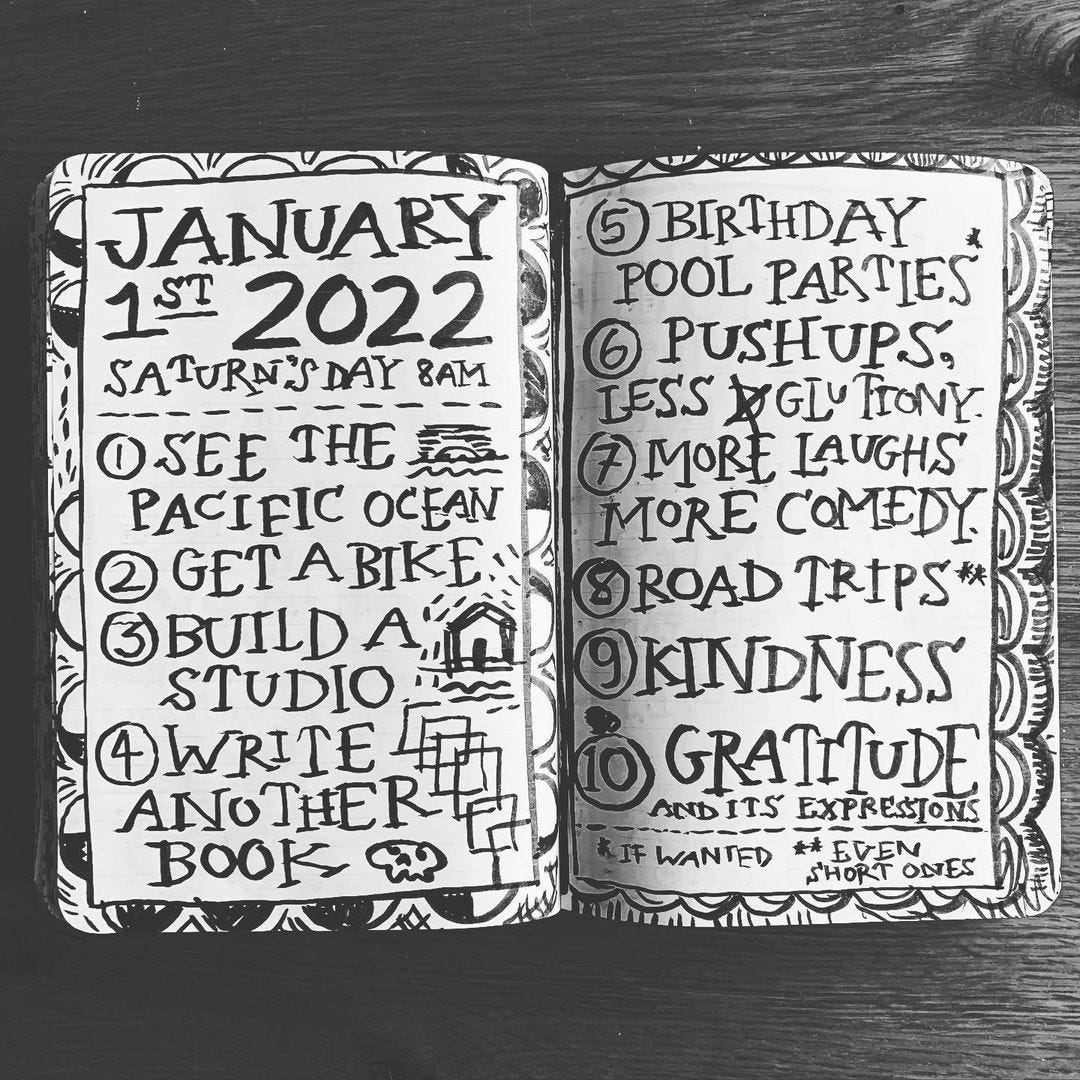 JANUARY
1ST 2022
SATURN'S DAY 8AM
① SEE THE
PACIFIC OCEAN
② GET A BIKE
③ BUILD A
STUDIO
④ WRITE
ANOTHER
BOOK
⑤ BIRTHDAY
POOL PARTIES*
⑥ PUSHUPS,
LESS GLUTTONY.
⑦ MORE LAUGHS
MORE COMEDY.
⑧ ROAD TRIPS**
⑨ KINDNESS
⑩ GRATITUDE
AND ITS EXPRESSIONS
* IF WANTED ** EVEN
SHORT ONES